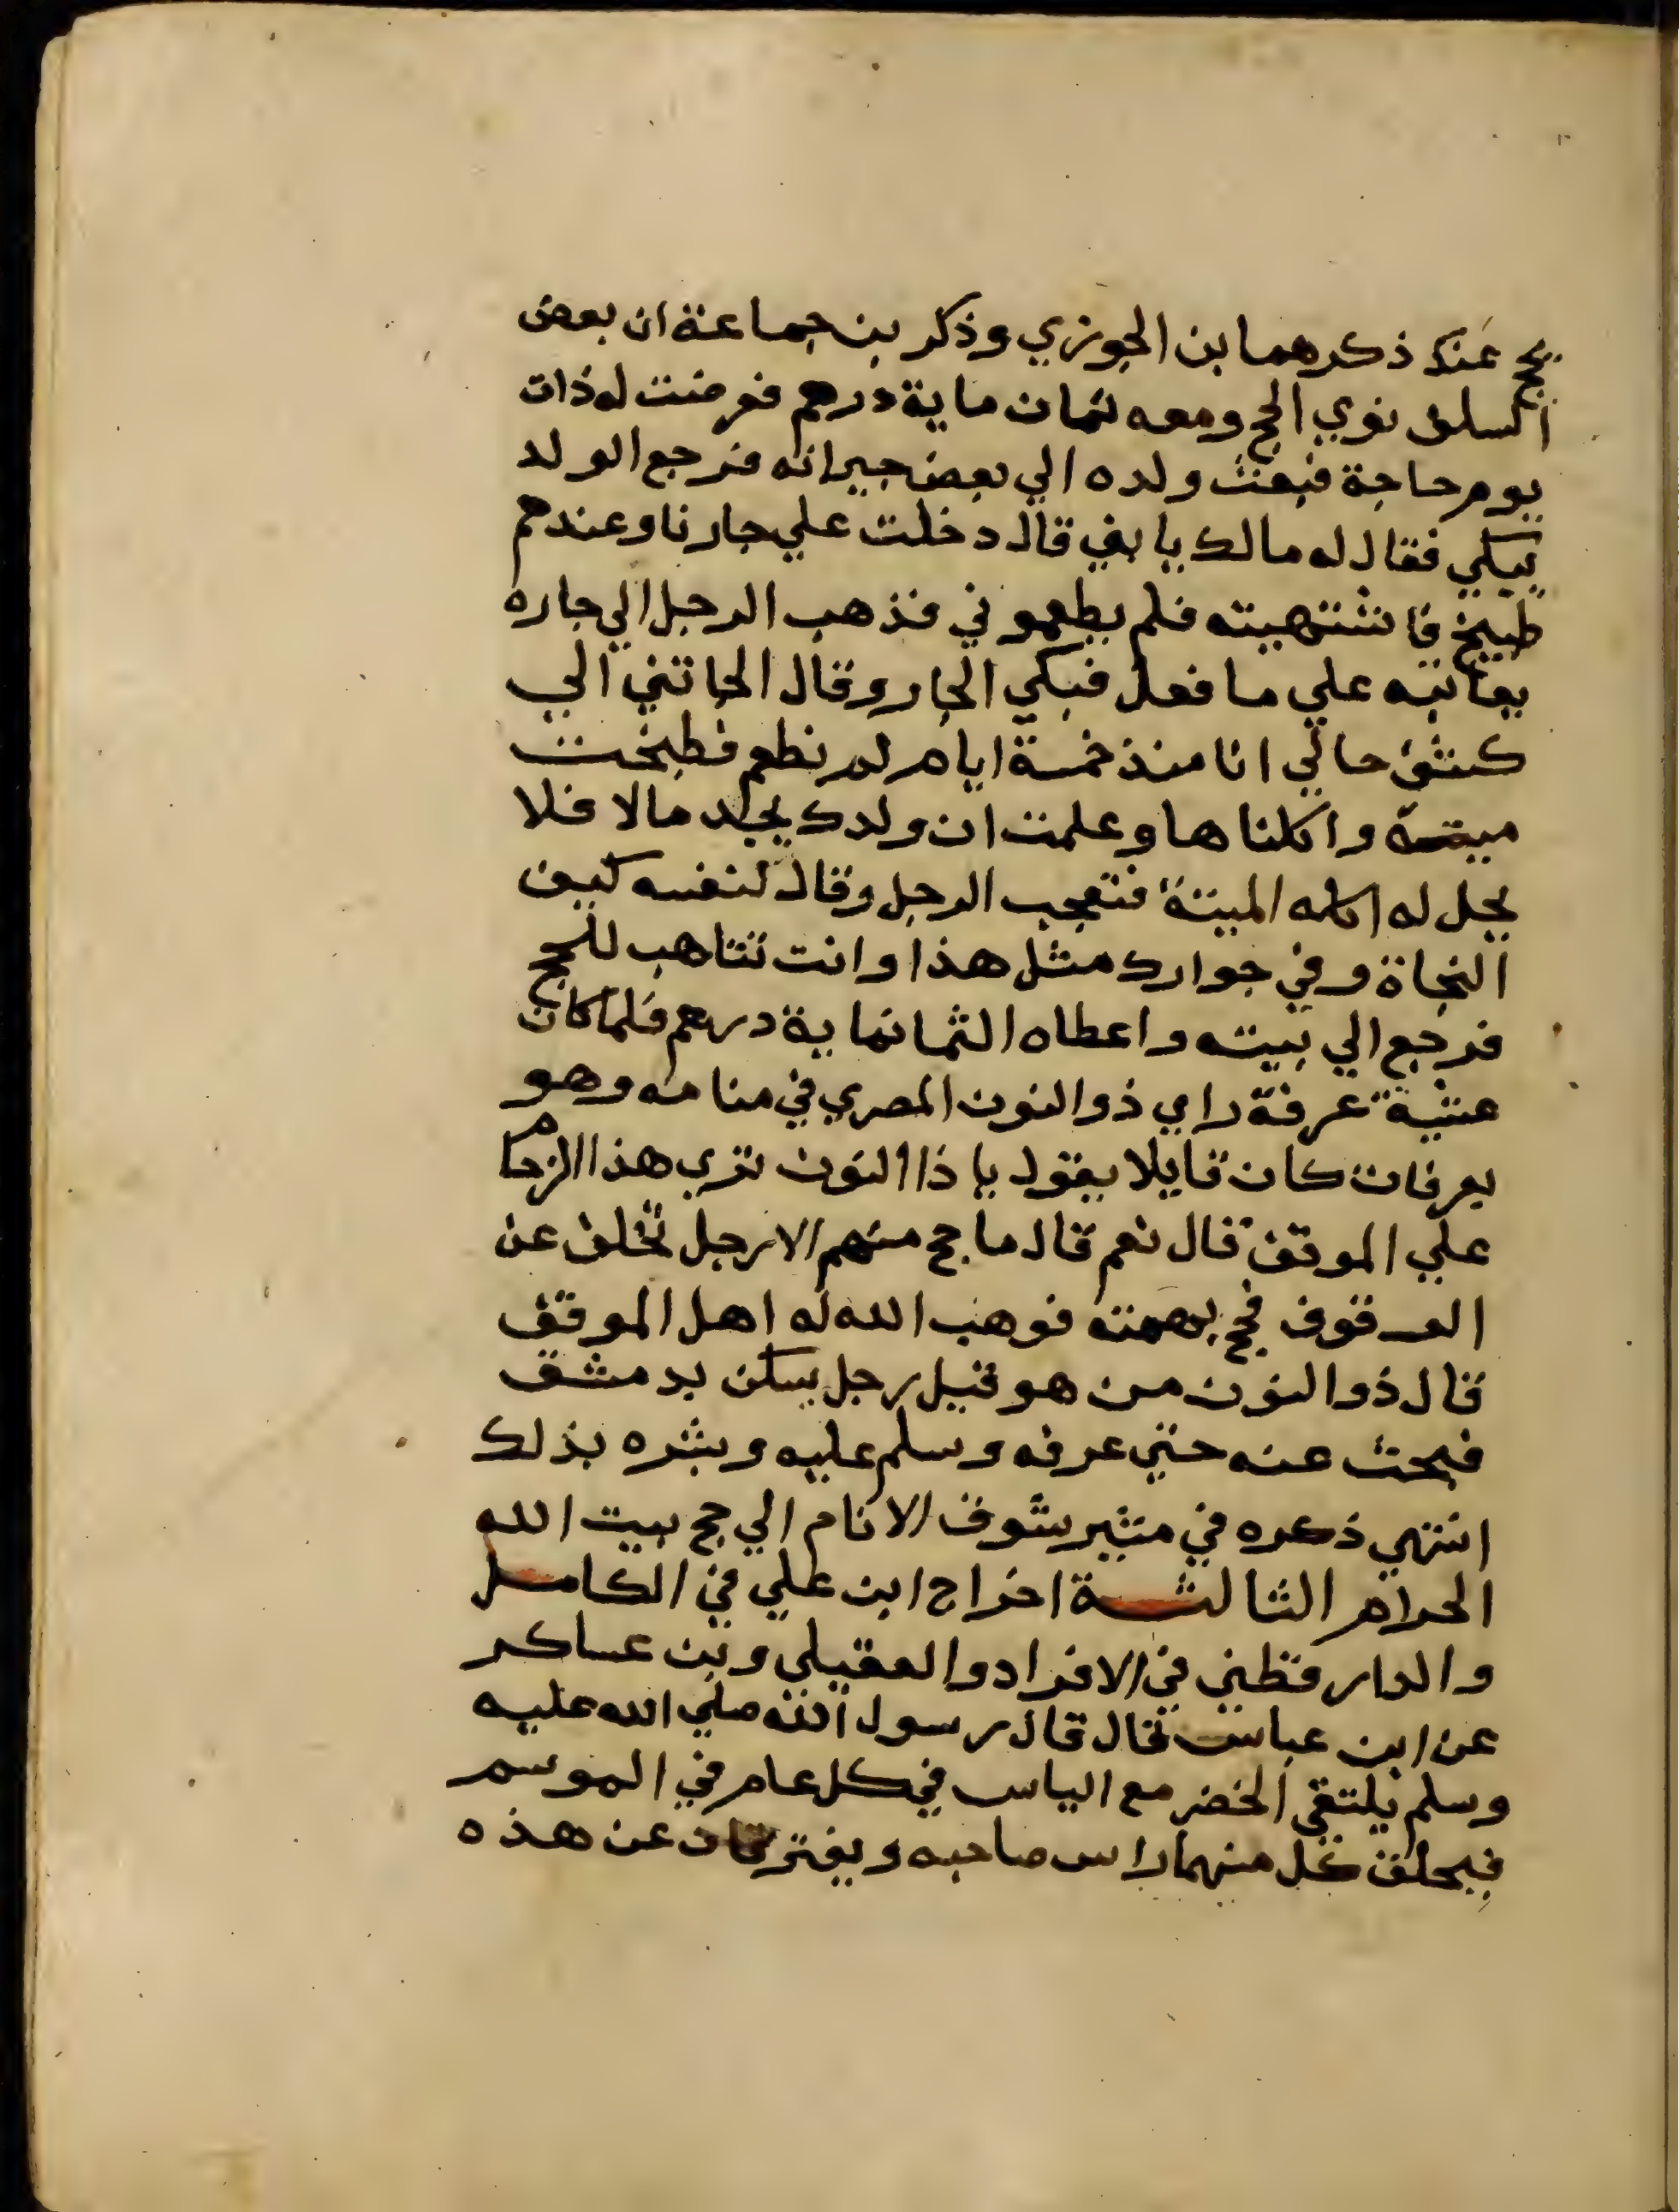 يحج عنك ذكرهما بن الجوزي وذكر بن جماعة ان بعض
السلف نوي الحج ومعه ثمان ماية درهم فعرضت له ذات
يوم حاجة فبعث ولده الي بعض جيرانه فرجع الولد
يبكي فقال له مالك يا بني قال دخلت علي جارنا وعندهم
طبيخ فاشتهيته فلم يطعموني فذهب الرجل الي جاره
يعاتبه علي ما فعل فبكي الجار وقال الجاتني الي
كشف حالي انا منذ خمسة ايام لم نطعم فطبخت
ميتة واكلناها وعلمت ان ولدك يجد مالا فلا
يحل له اكله الميتة فتعجب الرجل وقال لنفسه كيف
النجاة وفي جوارك مثل هذا وانت تتاهب للحج
فرجع الي بيته واعطاه الثمانماية درهم فلما كان
عشية عرفة راي ذو النون المصري في منامه وهو
بعرفات كان قايلا يقول يا ذا النون تري هذا الزحام
علي الموقف قال نعم قال ما حج منهم الا رجل تخلف عن
الوقوف فحج بهمته فوهب الله له اهل الموقف
قال ذو النون من هو قيل رجل يسكن بدمشق
فبحث عنه حتي عرفه وسلم عليه وبشره بذلك
انتهي ذكره في مثير شوف الانام الي حج بيت الله
الحرام الثالثة اخراج ابن علي في الكامل
والدارقطني في الافراد والعقيلي وبن عساكر
عن ابن عباس قال قال رسول الله صلي الله عليه
وسلم يلتقي الخضر مع الياس في كل عام في الموسم
فيحلق كل منهما راس صاحبه ويفترقان عن هذه